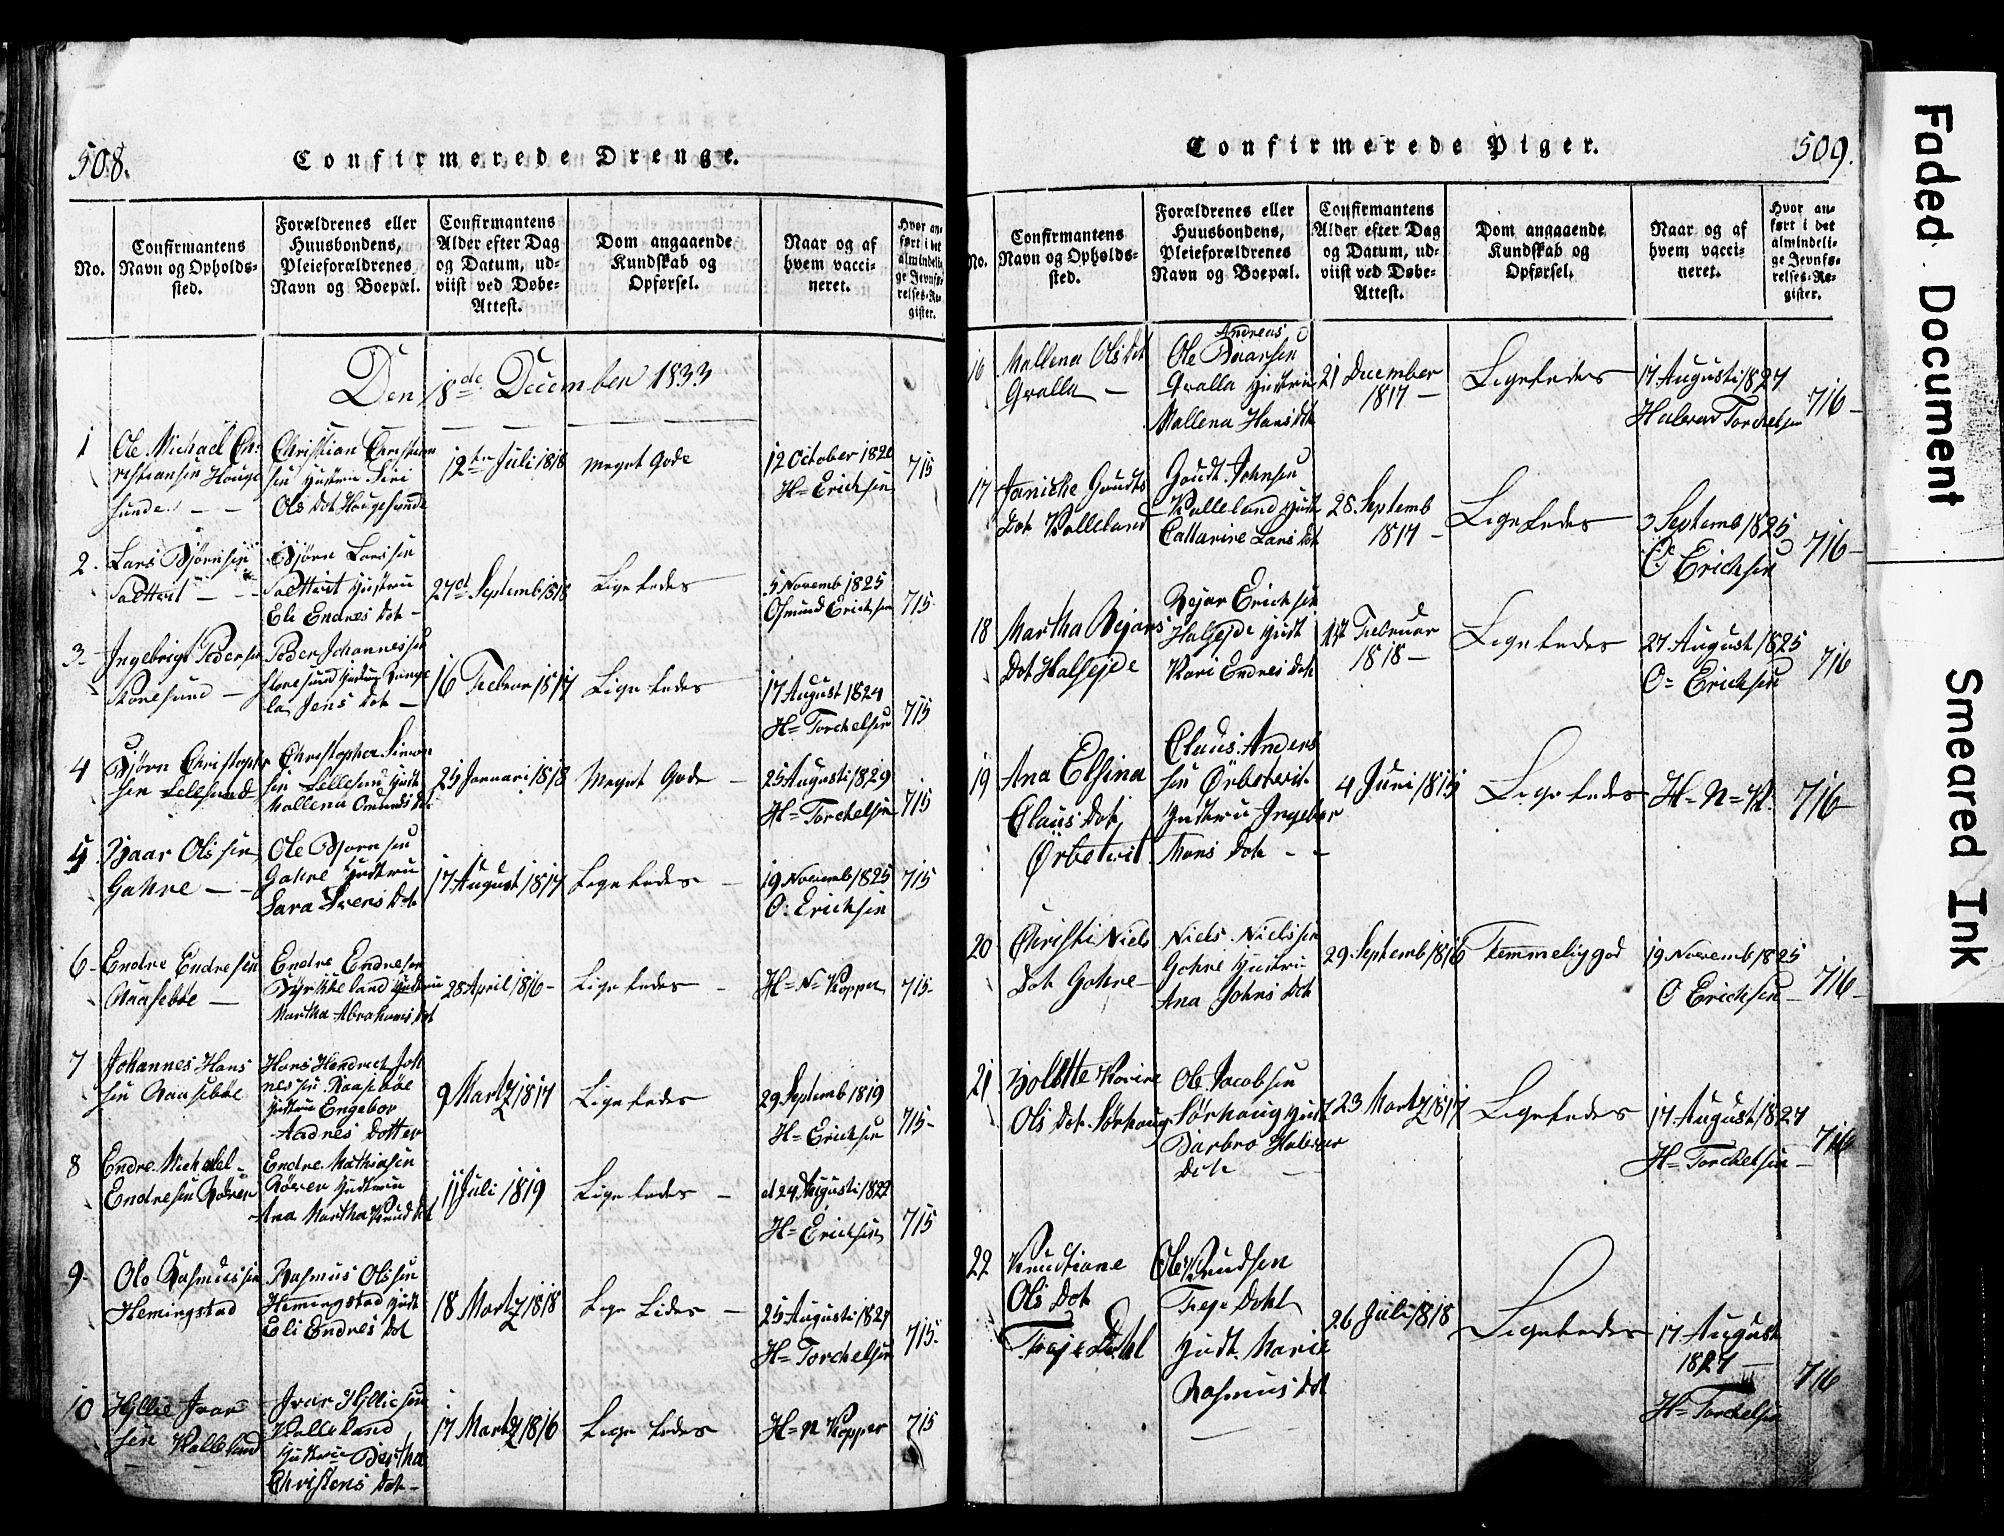 508.
Confirmerede Drenge.
No.
Confirmantens
Navn og Opholds-
sted.
Forældrenes eller
Huusbondens,
Pleieforældrenes
Navn og Boepæl.
Confirmantens
Alder efter Dag
og Datum, ud-
viist ved Døbe-
Attest.
Dom angaaende
Kundskab og
Opførsel.
Naar og af
hvem vacci-
neret.
Hvor an-
ført i det
almindeli-
ge Jevnfø-
relses-Re-
gister.
Den 18de December 1833
1
Ole Michael Ch-
ristiansen Houge
sunde
Christian Christian
sen Hustru Siri
Ols Dot Hougesunde
12te Juli 1818
Meget Gode
12 October 1820
H= Erichsen
715
2
Lars Bjørnsen
Bjørn Larssen
Hustru
Eli Endres Dot
27d Septemb 1818
Ligeledes
5 Novemb 1825
Osmund Erichsen
715
3
Ingebrigt Pedersen
Peder Johannessen
Jens Dot
16 Februar 1817
Ligeledes
17 August 1824
H= Torchelsen
715
4
Bjørn Christoph
sen Lillesund
Christopher Simon
sen Lillesund Hust
Mallena Omunds Dot
25 Januari 1818
Meget Gode
25 Augusti 1829
H= Torchelsen
715
5
Baar Olssen
Gahre
Ole Bjornsen
Gahre Hustru
Sara Svens Dot
17 August 1817
Ligeledes
19 Novemb 1825
O. Erichsen
715
6
Endre Endresen
Raasebøe
Endre Endresen
Byrkheland Hustru
Martha Abrahams Dot
28 April 1816
Ligeledes
H= N= Kopper
715
7
Johannes Hans
sen Raasebøe
Hans Hendrich Joh
nessen Raasebøe
Hustru Engebor
Aadnes Dotter
9 Martz 1817
Ligeledes
29 Septemb 1819
H= Erichsen
715
8
Endre Michael
Endresen Røver
Endre Mathiasen
Røver Hustru
Ana Martha Knuds Dot
11 Juli 1819
Ligeledes
d 24 Augusti 1822
H= Erichsen
715
9
Ole Rasmussen
Hemingstad
Rasmus Olssen
Hemingstad Hust
Eli Endres Dot
18 Martz 1818
Ligeledes
25 Augusti 1827
H= Torchelsen
715
10
Hyllie Ivar
sen Kalleland
Ivar Hylliesen
Kalleland
Hustru Bertha
Christens Dot
17 Martz 1816
Ligeledes
H= N Kopper
715
Confirmerede Piger.
509.
No.
Confirmantens
Navn og Opholds-
sted.
Forældrenes eller
Huusbondens,
Pleieforældrenes
Navn og Boepæl.
Confirmantens
Alder efter Dag
og Datum, ud-
viist ved Døbe-
Attest.
Dom angaaende
Kundskab og
Opførsel.
Naar og af
hvem vacci-
neret.
Hvor an-
ført i det
almindeli-
ge Jevnfø-
relses-Re-
gister.
16
Mallena Ols Dot
Qvalla
Andreas
Ole
Qvalla Hustru
Mallena Hans Dot
21 December
1817
Ligeledes
17 Augusti 1827
Halvar Torchelsen
716
17
Janiche Goudts
Dot Kalleland
Goudt Johnsen
Kalleland Hust
Cattarine Lars Dot
28 Septemb
1817
Ligeledes
3 Septemb 1825
O Erichsen
716
18
Martha Rejars
Dot Halseide
Rejar Erichsen
Halseide Hust
Kari Endres Dot
1st Februar
1818
Ligeledes
27 August 1825
O= Erichsen
716
19
Ana Elsina
Claus Dot
Ørbetvit
Claus Anders
sen Ørbetvit
Hustru Ingebor
Mons Dot
4 Juni 1815
Ligeledes
H= N= K.
716
20
Christi Niels
Dot Gahre
Niels Nielssen
Gahre Hustru
Ana Johns Dot
29 Septemb 1816
Temmelig god
19 Novemb 1825
O Erichsen
716
21
Bolette Karine
Ols Dot Sørhoug
Ole Jacobsen
Sørhoug Hust
Barbro Halvar
Dot
23 Martz 1817
Ligeledes
17 August 1827
H= Torchelsen
716
22
Knudtiane
Ols Dot
Treje Dahl
Ole Knudsen
Treje Dahl
Hust Marie
Rasmus Dot
26 Juli 1818
Ligeledes
17 August
1827
H= Torchelsen
716
Faded Document
Smeared Ink